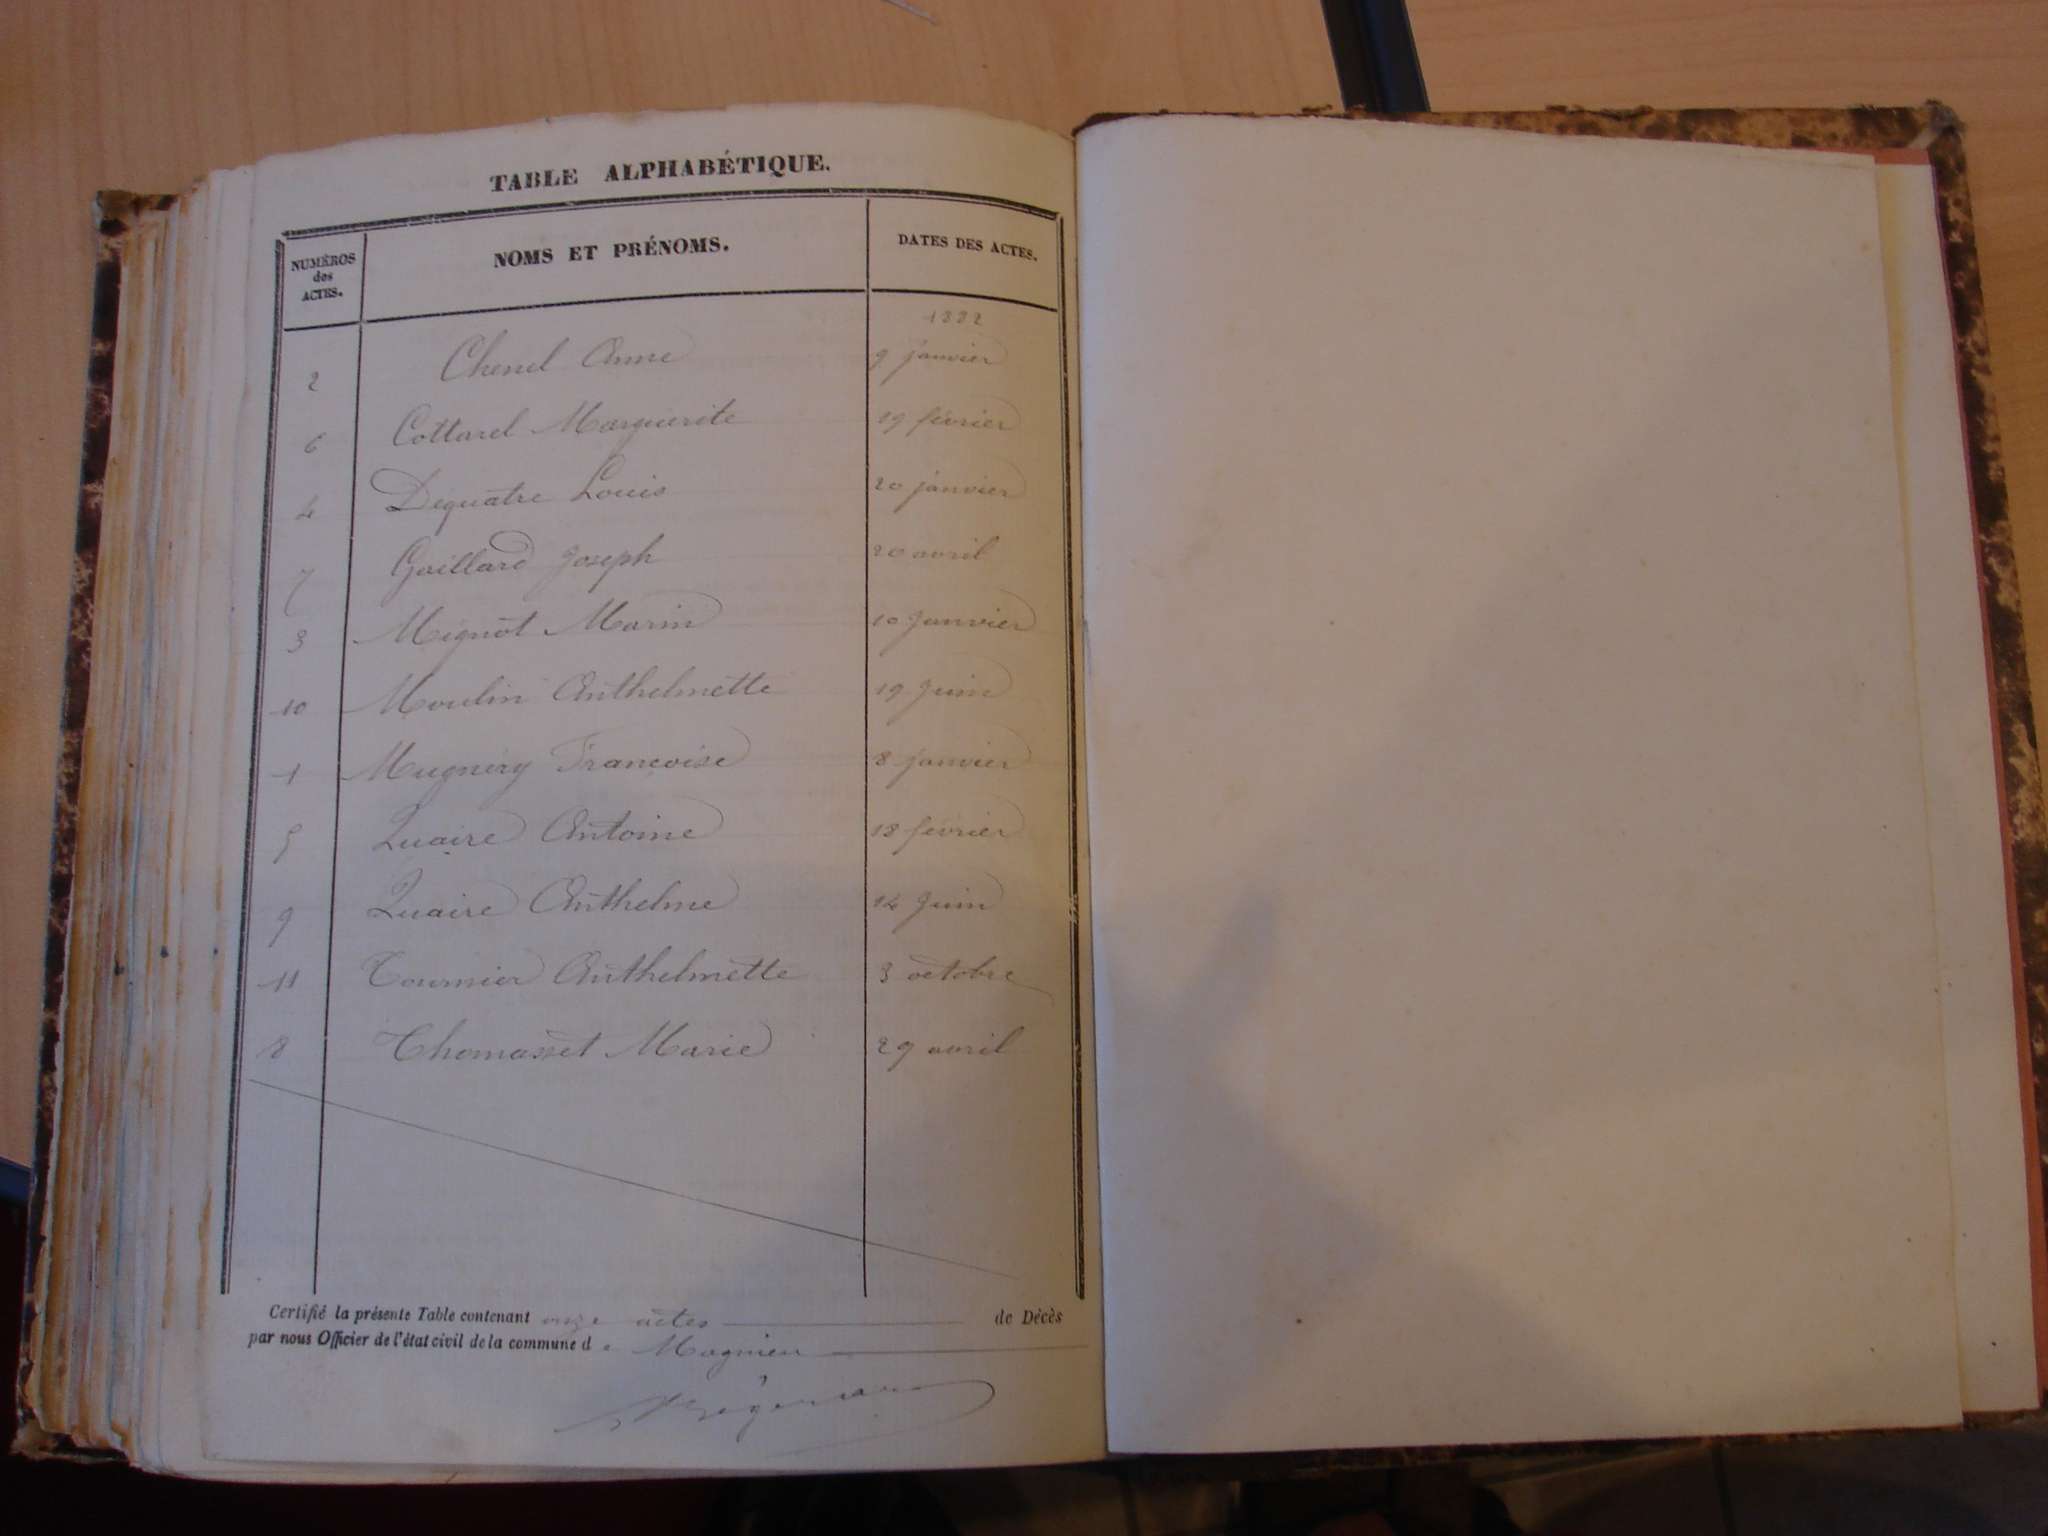 TABLE ALPHABÉTIQUE.
NUMÉROS des ACTES. NOMS ET PRÉNOMS. DATES DES ACTES.
1882
2 Chenel Anne 9 janvier
6 Cottarel Marguerite 19 février
4 Dequatre Louis 20 janvier
7 Gaillard Joseph 20 avril
3 Mignot Marin 10 Janvier
10 Moulin Anthelmette 19 Juin
1 Mugnery Francoise 8 janvier
5 Quaire Antoine 18 février
9 Quaire Anthelme 14 Juin
11 Tournier Anthelmette 3 octobre
8 Thomasset Marie 29 avril
Certifié la présente Table contenant onze actes de Décès
par nous Officier de l'état civil de la commune de Magnieu